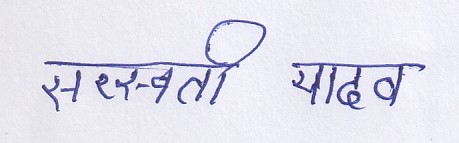 सरस्वती यादव